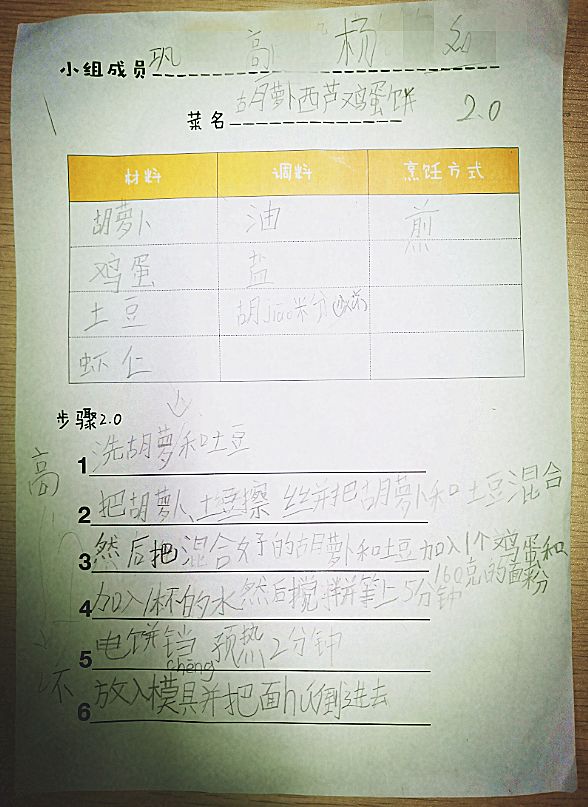 小组成员 巩 高 杨
菜名 胡萝卜西芦鸡蛋饼 2.0
材料 调料 烹饪方式
胡萝卜 油 煎
鸡蛋 盐
土豆 胡jiao米分
虾仁
步骤2.0
1 洗胡萝卜和土豆
2 把胡萝卜、土豆擦丝并把胡萝卜和土豆混合
3 然后把混合好的胡萝卜和土豆加入1个鸡蛋和
160克的面粉
4 加入1杯的水然后搅拌等上5分钟
5 电饼铛 预热2分钟
chēng
6 放入模具并把面hú倒进去
高
坏